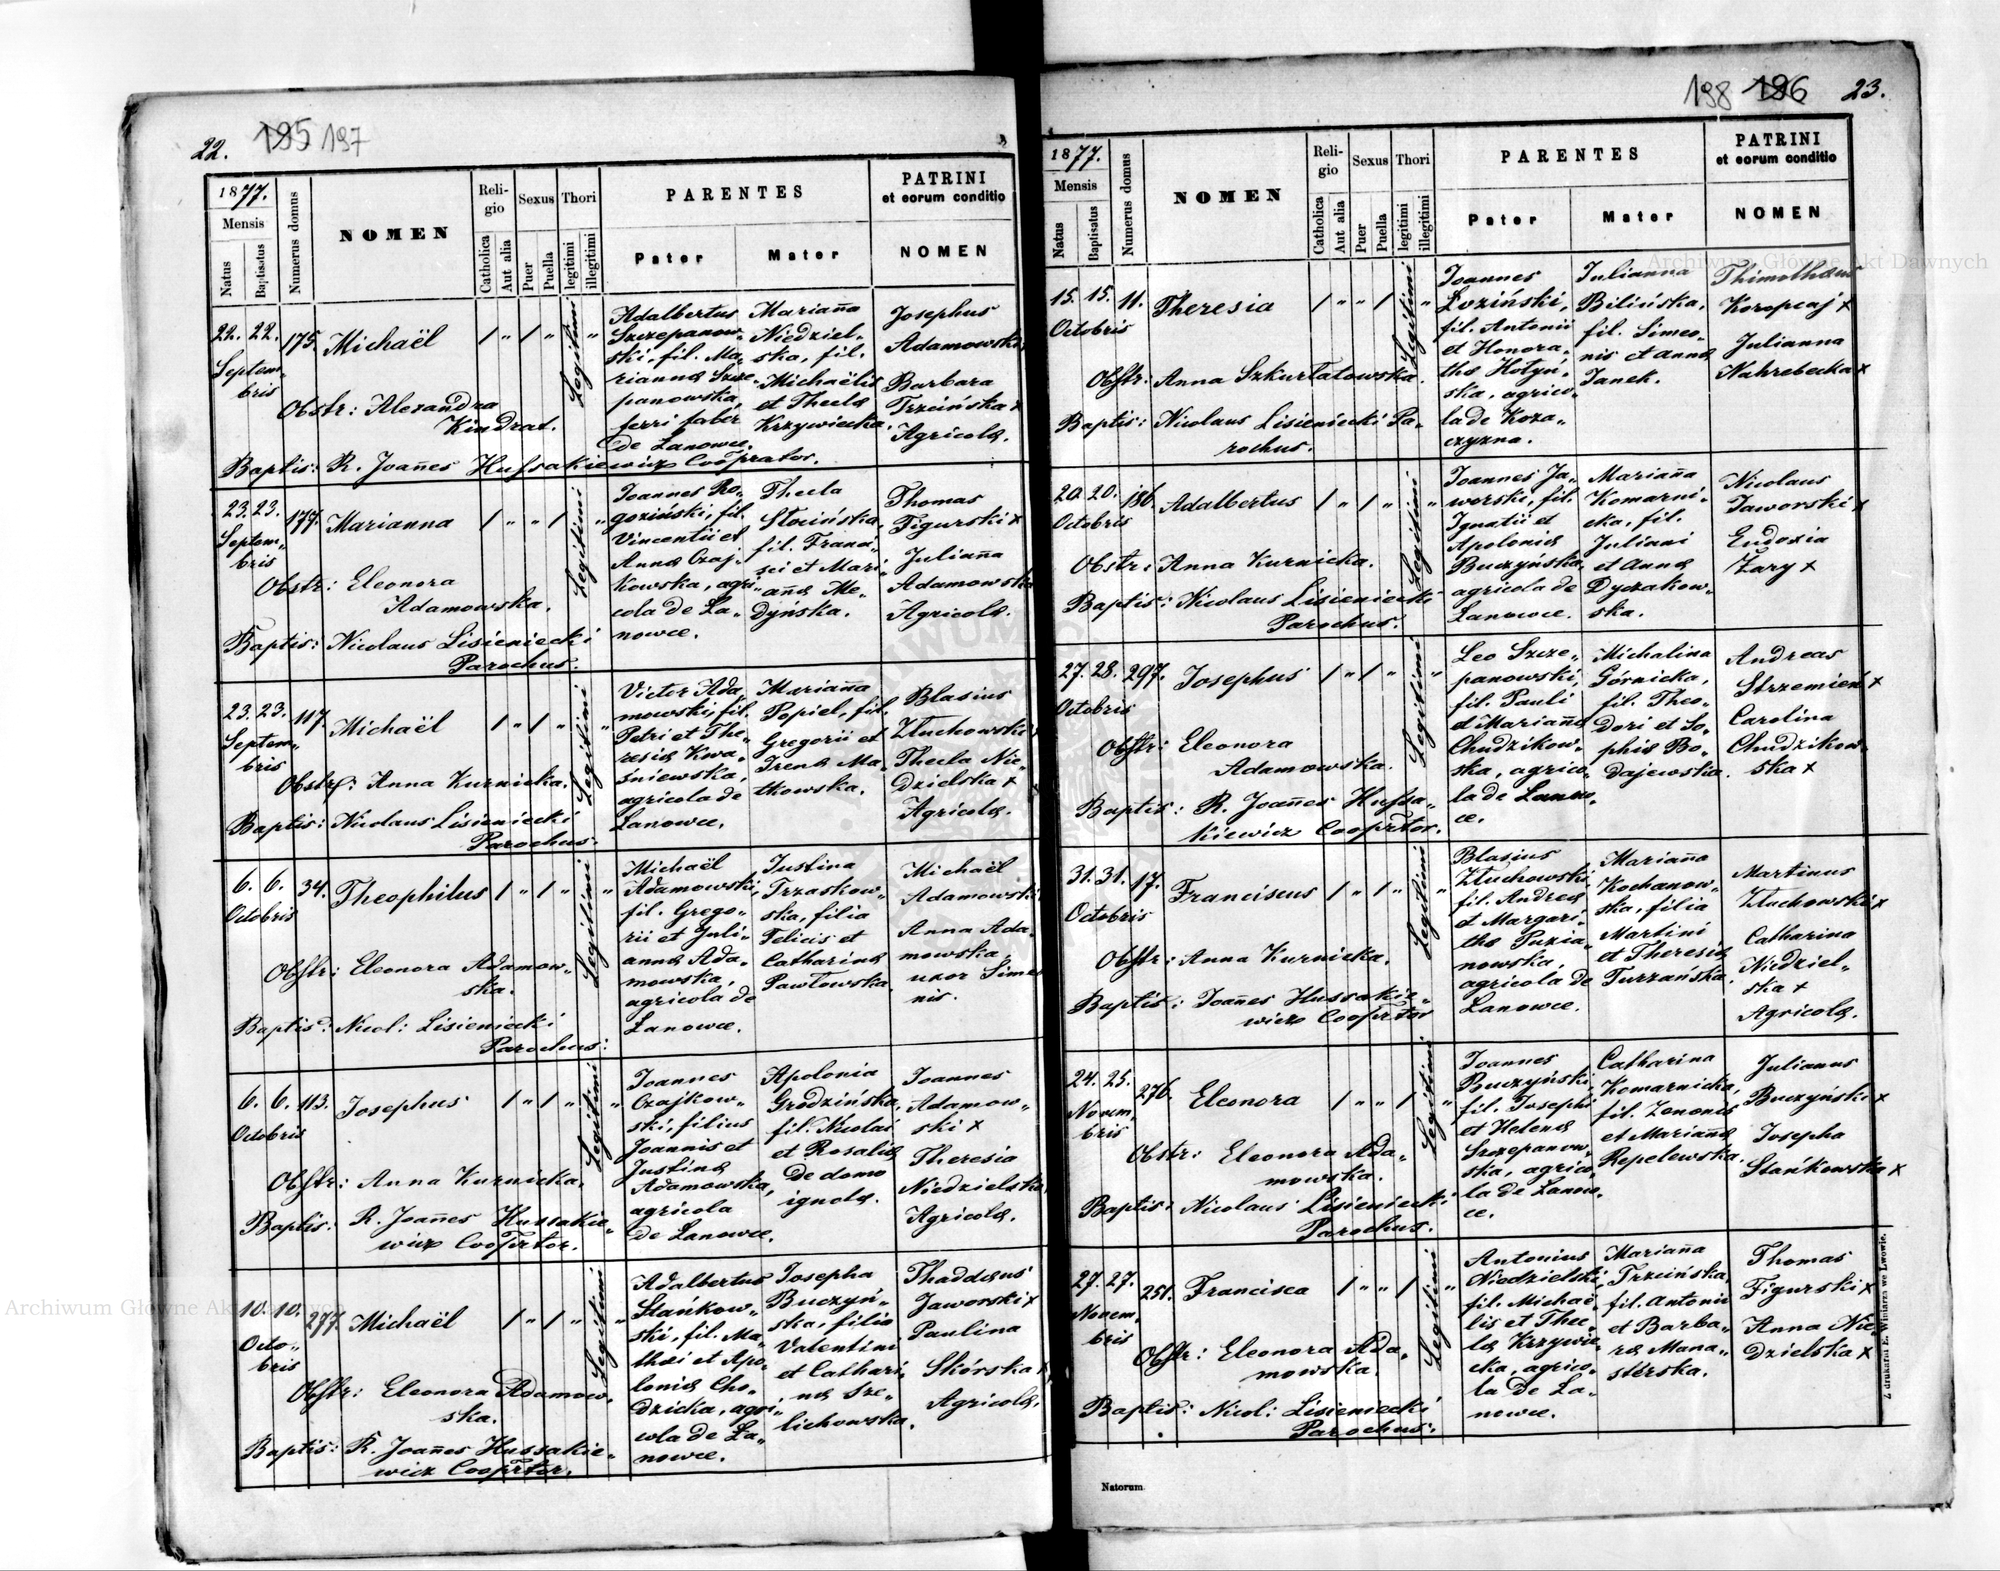 22. 195 197
1877.
Mensis
Natus
Baptisatus
Numerus domus
NOMEN
Reli-
gio
Catholica
Aut alia
Sexus
Puer
Puella
Thori
legitimi
illegitimi
PARENTES
Pater
Mater
PATRINI
et eorum conditio
NOMEN
22. 22. 175. Michaël / " / " Legitimi "
Septem-
bris
Obstr: Alexandra
Kindrat.
Baptis: R. Joañes Hussakiewicz Cooprator.
Adalbertus
Szczepanow-
ski, fil. Ma-
rianna Szcze-
panowska,
ferri faber
de Lanowce.
Mariaña
Niedziel-
ska, fil.
Michaëlis
et Thecla
Krzywiecka.
Josephus
Adamowski
Barbara
Trzcińska x
Agricolæ.
23. 23. 177. Marianna / " " / Legitimi "
Septem-
bris
Obstr: Eleonora
Adamowska.
Baptis: Nicolaus Lisieniecki
Parochus.
Joannes Ro-
goziński, fil.
Vincentii et
Anna Czaj-
kowska, agri-
cola de La-
nowce.
Thecla
Słocińska,
fil. Franci-
sci et Mari-
añæ Me-
dyńska.
Thomas
Figurski x
Juliaña
Adamowska
Agricolæ.
23. 23. 117. Michaël / " / " Legitimi "
Septem-
bris
Obstr: Anna Kurnicka.
Baptis: Nicolaus Lisieniecki
Parochus.
Victor Ada-
mowski, fil.
Petri et The-
resiæ Kwa-
śniewska,
agricola de
Lanowce.
Mariaña
Popiel, fil.
Gregorii et
Irenæ Ma-
tkowska.
Blasius
Złuchowski
Thecla Nie-
dzielska x
Agricolæ.
6. 6. 34. Theophilus / " / " Legitimi "
Octobris
Obstr: Eleonora Adamow-
ska.
Baptis: Nicol: Lisieniecki
Parochus:
Michaël
Adamowski,
fil. Grego-
rii et Juli-
annæ Ada-
mowska,
agricola de
Lanowce.
Justina
Trzaskow-
ska, filia
Felicis et
Catharinæ
Pawłowska.
Michaël
Adamowski
Anna Ada-
mowska
uxor Simeo
nis.
6. 6. 113. Josephus / " / " Legitimi "
Octobris
Obstr: Anna Kurnicka.
Baptis: R. Joañes Hussakie-
wicz Cooprtor.
Joannes
Czajkow-
ski, filius
Joannis et
Justinæ
Adamowska,
agricola
de Lanowce.
Apolonia
Grodzińska,
fil. Nicolai
et Rosaliæ
de domo
ignotæ.
Joannes
Adamow-
ski x
Theresia
Niedzielska
Agricolæ.
10. 10. 277. Michaël / " / " Legitimi "
Octo-
bris
Obstr: Eleonora Adamow-
ska.
Baptis: R. Joañes Hussakie-
wicz Cooprtor.
Adalbertus
Stańkow-
ski, fil. Ma-
thæi et Apo-
loniæ Cho-
dzicka, agri-
cola de La-
nowce.
Josepha
Buczyń-
ska, filia
Valentini
et Cathari-
næ Sze-
lichowska.
Thaddæus
Jaworski x
Paulina
Skórska x
Agricolæ.
198 196 23.
1877.
Mensis
Natus
Baptisatus
Numerus domus
NOMEN
Reli-
gio
Catholica
Aut alia
Sexus
Puer
Puella
Thori
legitimi
illegitimi
PARENTES
Pater
Mater
PATRINI
et eorum conditio
NOMEN
15. 15. 11. Theresia / " " / Legitimi "
Octobris
Obstr: Anna Szkurłatowska.
Baptis: Nicolaus Lisieniecki Pa-
rochus.
Joannes
Łoziński,
fil. Antonii
et Honora-
thæ Hołyń-
ska, agrico-
la de Koza-
czyzna.
Julianna
Bilińska,
fil. Simeo-
nis et Annæ
Janek.
Thimothæus
Koropcaj x
Julianna
Nahrebecka x
20. 20. 186. Adalbertus / " / " Legitimi "
Octobris
Obstr: Anna Kurnicka.
Baptis: Nicolaus Lisieniecki
Parochus.
Joannes Ja-
worski, fil.
Ignatii et
Apoloniæ
Buczyńska,
agricola de
Lanowce.
Mariaña
Komarni-
cka, fil.
Juliani
et Annæ
Dyczakow-
ska.
Nicolaus
Jaworski x
Eudoxia
Żary x
27. 28. 297. Josephus / " / " Legitimi "
Octobris
Obstr: Eleonora
Adamowska.
Baptis: R. Joañes Hussa-
kiewicz Cooprtor.
Leo Szcze-
panowski,
fil. Pauli
et Mariañæ
Chudzikow-
ska, agrico-
la de Lanow-
ce.
Michalina
Górnicka,
fil. Theo-
dori et So-
phiæ Bo-
dajewska.
Andreas
Strzemień x
Carolina
Chudzikow-
ska x
31. 31. 17. Franciscus / " / " Legitimi "
Octobris
Obstr: Anna Kurnicka.
Baptis: Joañes Hussakie-
wicz Cooprtor
Blasius
Złuchowski,
fil. Andreæ
et Margari-
thæ Puzia-
nowska,
agricola de
Lanowce.
Mariaña
Kochanow-
ska, filia
Martini
et Theresiæ
Turzańska.
Martinus
Złuchowski x
Catharina
Niedziel-
ska x
Agricolæ.
24. 25. 276. Eleonora / " " / Legitimi "
Novem
bris
Obstr: Eleonora Ada-
mowska.
Baptis: Nicolaus Lisieniecki
Parochus.
Joannes
Buczyński,
fil. Josephi
et Helenæ
Szczepanow-
ska, agrico-
la de Lanow-
ce.
Catharina
Komarnicka,
fil. Zenonis
et Mariañæ
Repelewska.
Julianus
Buczyński x
Josepha
Stańkowska x
27. 27. 251. Francisca / " " / Legitimi "
Novem-
bris
Obstr: Eleonora Ada-
mowska.
Baptis: Nicol: Lisieniecki
Parochus:
Antonius
Niedzielski,
fil. Michaë-
lis et The-
læ Krzywie-
cka, agrico-
la de La-
nowce.
Mariaña
Trzcińska,
fil. Antonii
et Barba-
ræ Mana-
sterska.
Thomas
Figurski x
Anna Nie-
dzielska x
Natorum
Z drukarni E. Winiarza we Lwowie.
Archiwum Główne Akt Dawnych
Archiwum Główne Akt Dawnych